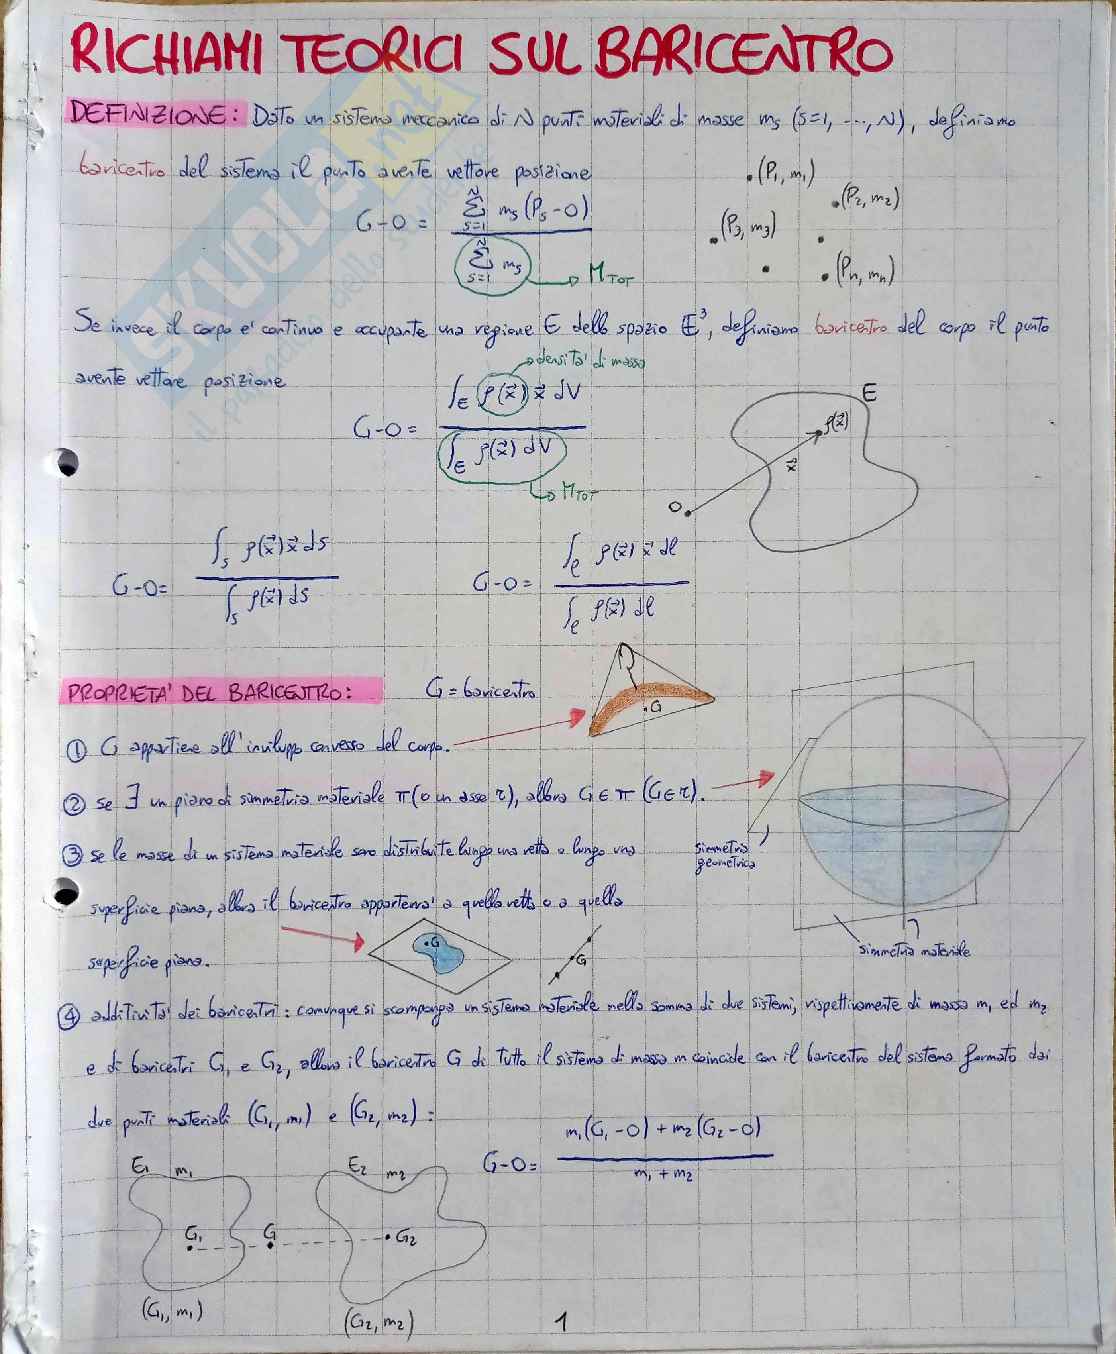 RICHIAMI TEORICI SUL BARICENTRO
DEFINIZIONE: Dato un sistema meccanico di N punti materiali di masse m_s (s=1, ..., N), definiamo
baricentro del sistema il punto avente vettore posizione
G-O = \frac{\sum_{s=1}^{N} m_s (P_s-O)}{\sum_{s=1}^{N} m_s} → M_TOT
(P_1, m_1)
(P_2, m_2)
(P_3, m_3)
(P_n, m_n)
Se invece il corpo e' continuo e occupante una regione E dello spazio E^3, definiamo baricentro del corpo il punto
avente vettore posizione
densita' di massa
G-O = \frac{\int_E ρ(\vec{x}) \vec{x} dV}{\int_E ρ(\vec{x}) dV}
M_TOT
E
ρ(\vec{x})
\vec{x}
O
G-O = \frac{\int_s ρ(\vec{x}) \vec{x} ds}{\int_s ρ(\vec{x}) ds}
G-O = \frac{\int_e ρ(\vec{x}) \vec{x} dl}{\int_e ρ(\vec{x}) dl}
PROPRIETA' DEL BARICENTRO: G = baricentro
G
① G appartiene all'inviluppo convesso del corpo.
② se ∃ un piano di simmetria materiale π (o un asse r), allora G∈π (G∈r).
③ se le masse di un sistema materiale sono distribuite lungo una retta o lungo una
superficie piana, allora il baricentro apparterra' a quella retta o a quella
superficie piana.
simmetria
geometrica
simmetria materiale
G
G
④ additivita' dei baricentri: comunque si scomponga un sistema materiale nella somma di due sistemi, rispettivamente di massa m_1 ed m_2
e di baricentri G_1 e G_2, allora il baricentro G di tutto il sistema di massa m coincide con il baricentro del sistema formato dai
due punti materiali (G_1, m_1) e (G_2, m_2):
G-O = \frac{m_1(G_1-O) + m_2(G_2-O)}{m_1 + m_2}
E_1 m_1
E_2 m_2
G_1 G G_2
(G_1, m_1)
(G_2, m_2)
1
SKUOLA.net